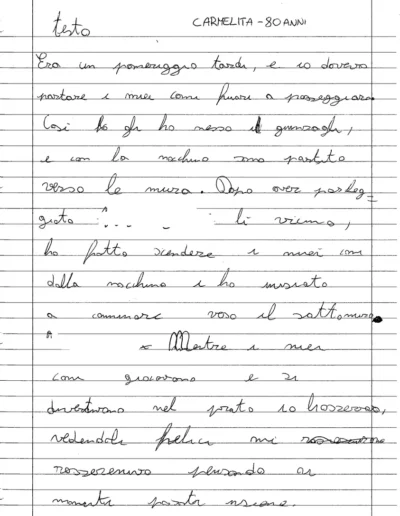 testo CARMELITA - 80 ANNI
Era un pomeriggio tardi, e io dovevo
portare i miei cani fuori a passeggiare.
Così gli ho messo il guinzagli,
e con la macchina sono partito
verso le mura. Dopo aver parheg-
giato li vicino,
ho fatto scendere i miei cani
dalla macchina e ho iniziato
a camminare verso il sottomura
Mentre i miei
cani giocavano e si
divertivano nel prato io
vedendoli felici mi
rasserenavo pensando ai
momenti passati insieme.